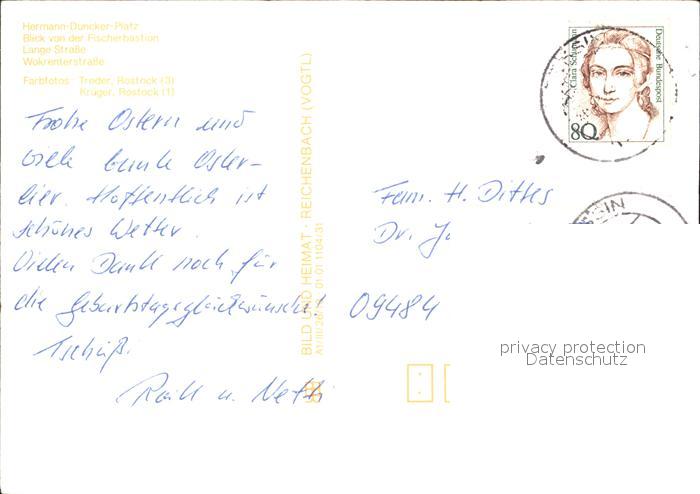 Hermann-Duncker-Platz
Blick von der Fischerbastion
Lange Straße
Wokrenterstraße
Farbfotos: Treder, Rostock (3)
Krüger, Rostock (1)
Frohe Ostern und
viele bunte Oster-
eier. Hoffentlich ist
schönes Wetter.
Vielen Dank noch für
die Geburtstagsglückwünsche!
Tschüß.
u.
BILD UND HEIMAT · REICHENBACH (VOGTL)
01 01 1104/31
Clara Schumann
Deutsche Bundespost
80
Fam. H. Dittes
Dr.
09484
privacy protection
Datenschutz